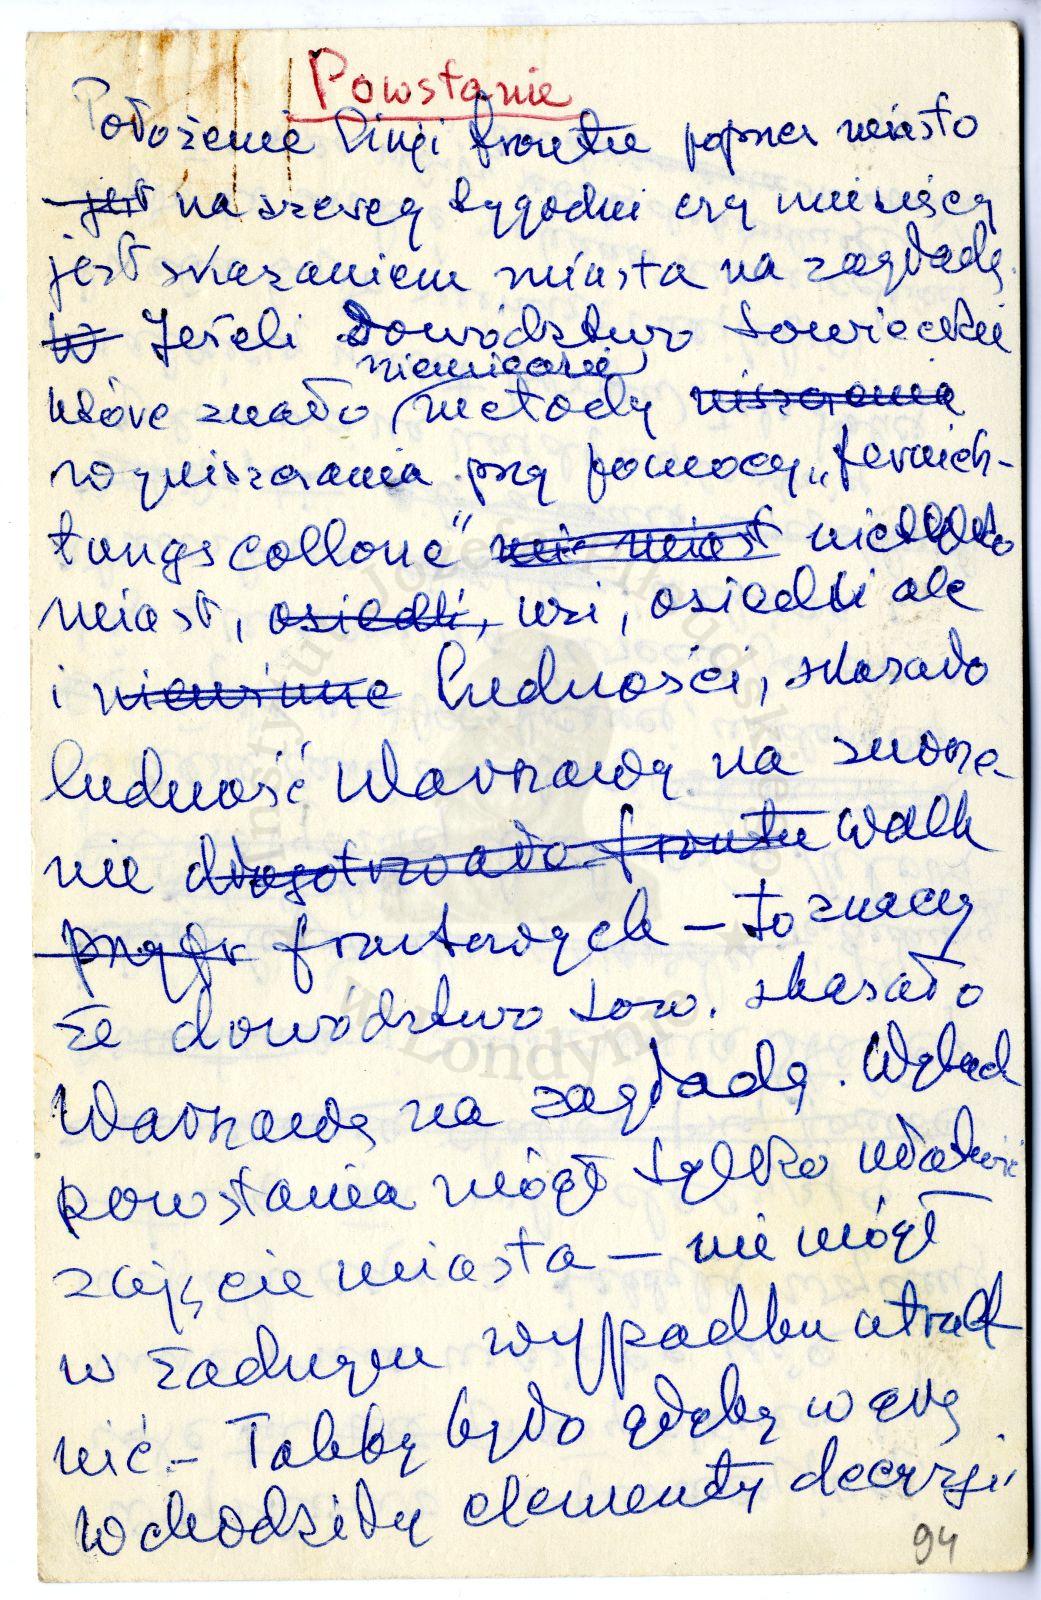 Powstanie
Położenie linji frontu poprzez miasto
jest na szereg tygodni czy miesięcy
jest skazaniem miasta na zagładę.
W Jeżeli Dowództwo Sowieckie
niemieckie
które znało metody niszczenia
wyniszczania przy pomocy „fernich-
tungscollone" nie miast nietylko
miast, osiedli, wsi, osiedli ale
i niewinne ludności, skazało
ludność Warszawy na znosze-
nie długotrwała frontu walk
frontowych – to znaczy
że dowództwo sow. skazało
Warszawę na zagładę. Wybuch
powstania mógł tylko ułatwić
zajęcie miasta – nie mógł
w żadnym wypadku utrud-
nić. – Takby było gdyby w grę
wchodziły elementy decyzji
94
Instytut Józefa Piłsudskiego
w Londynie